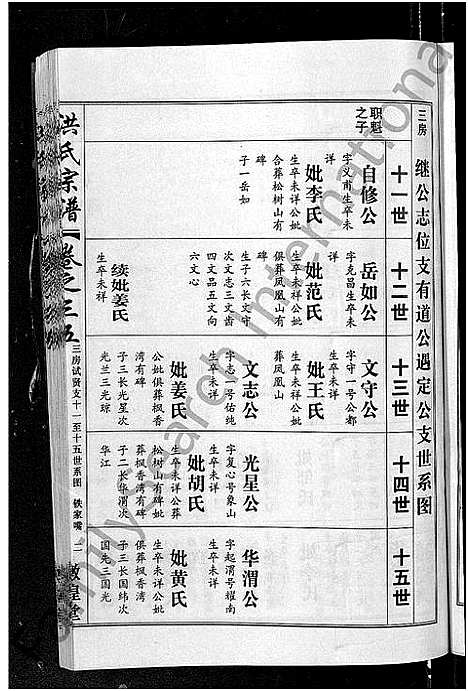 三房
继公志位支有道公遇定公支世系图
十一世
职魁
之子
自修公
字义甫生卒未
详
妣李氏
生卒未详公妣
合葬松树山有
碑
子一岳如
十二世
岳如公
字克昌生卒未
详
妣范氏
生卒未祥公妣
俱葬凤凰山有
碑
生子六长文守
次文志三文齿
四文品五文向
六文心
续妣姜氏
生卒未祥
十三世
文守公
字守一号公都
生卒未祥
妣王氏
生卒未祥公妣
葬凤凰山
文志公
字志一号佑纯
生卒未详
妣姜氏
生卒未详
公妣俱葬枫香
湾有碑
子三长光星次
光兰三光琼
十四世
光星公
字复心号象山
生卒未详
妣胡氏
生卒未详公葬
松树山有碑妣
葬枫香湾有碑
子二长华渭次
华江
十五世
华渭公
字起渭号耀南
生卒未详
妣黄氏
生卒未详公妣
俱葬枫香湾
子三长国纬次
国先三国光
洪氏宗谱
卷之三五
三房试贤支十一至十五世系图
铁家嘴
二
敦皇堂